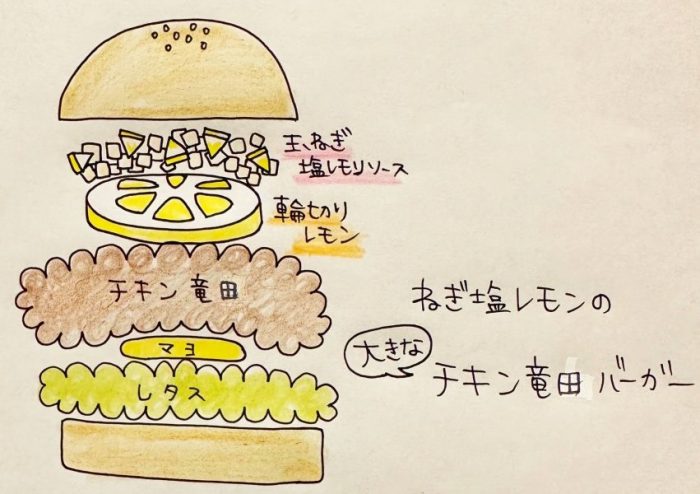 玉ねぎ
塩レモンソース
輪切り
レモン
チキン竜田
マヨ
レタス
ねぎ塩レモンの
大きな
チキン竜田バーガー